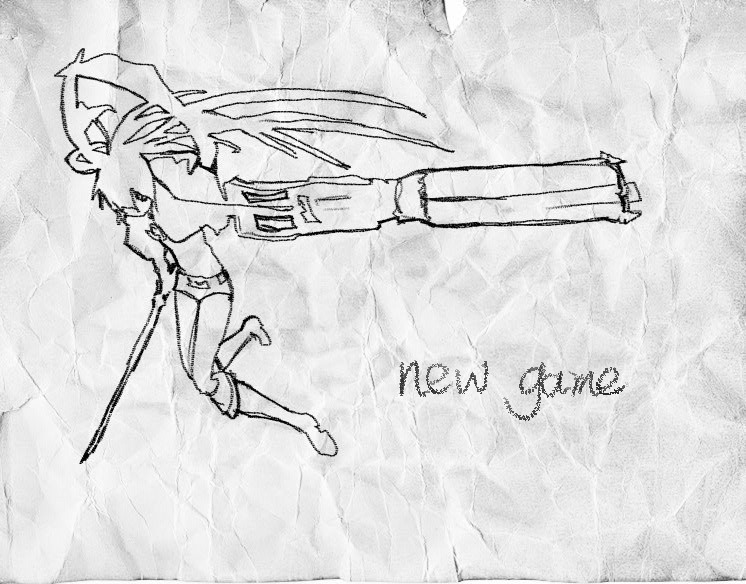 new game